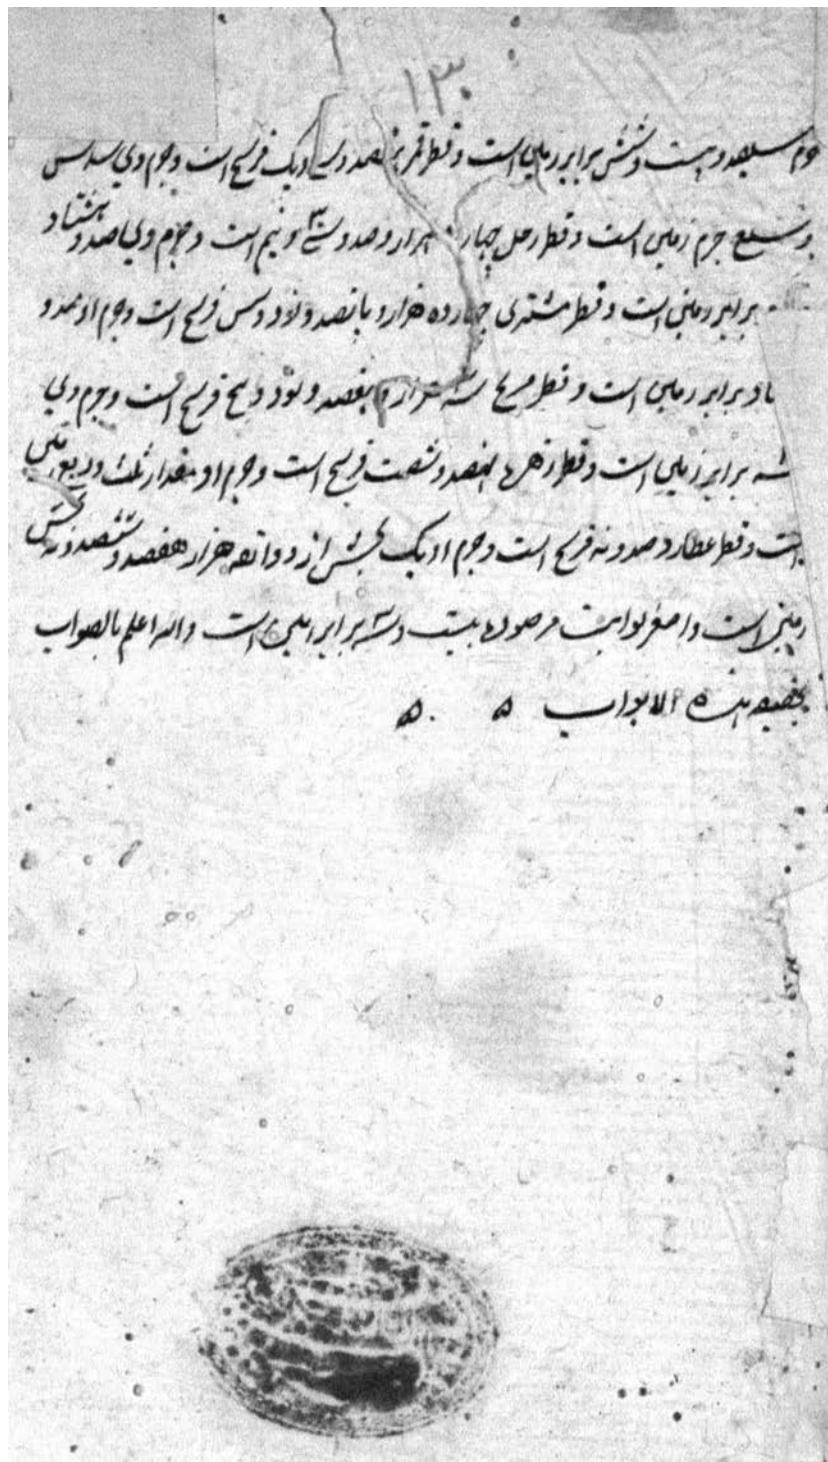 ۱۳۰
جرم سیصد و بیست و شش برابر زمین است و قطر قمر هفصد و سی و یک فرسخ است و جرم وی سدس
و سبع جرم زمین است و قطر زحل چهارده هزار و صد و سی و نیم است و جرم وی صد و هشتاد
برابر زمین است و قطر مشتری چهارده هزار و پانصد و نود و سس فرسخ است و جرم او صد و
برابر زمین است و قطر مریخ سه هزار و هفصد و نود و پنج فرسخ است و جرم وی
سه برابر زمین است و قطر زهره و شصت فرسخ است و جرم او مقدار ثلث و ربع زمین
است و قطر عطارد صد و نه فرسخ است و جرم او یک بخش از دوازده هزار هفصد و ششصد و نه بخش
زمین است و اصغر ثوابت مرصوده بیست و سه برابر زمین است والله اعلم بالصواب
هذه الابواب ه ه